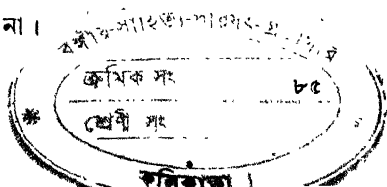 না।
বঙ্গীয়-সাহিত্য-পরিষৎ-গ্র
ক্রমিক সং ৮৫
শ্রেণী সং
কলিকাতা।